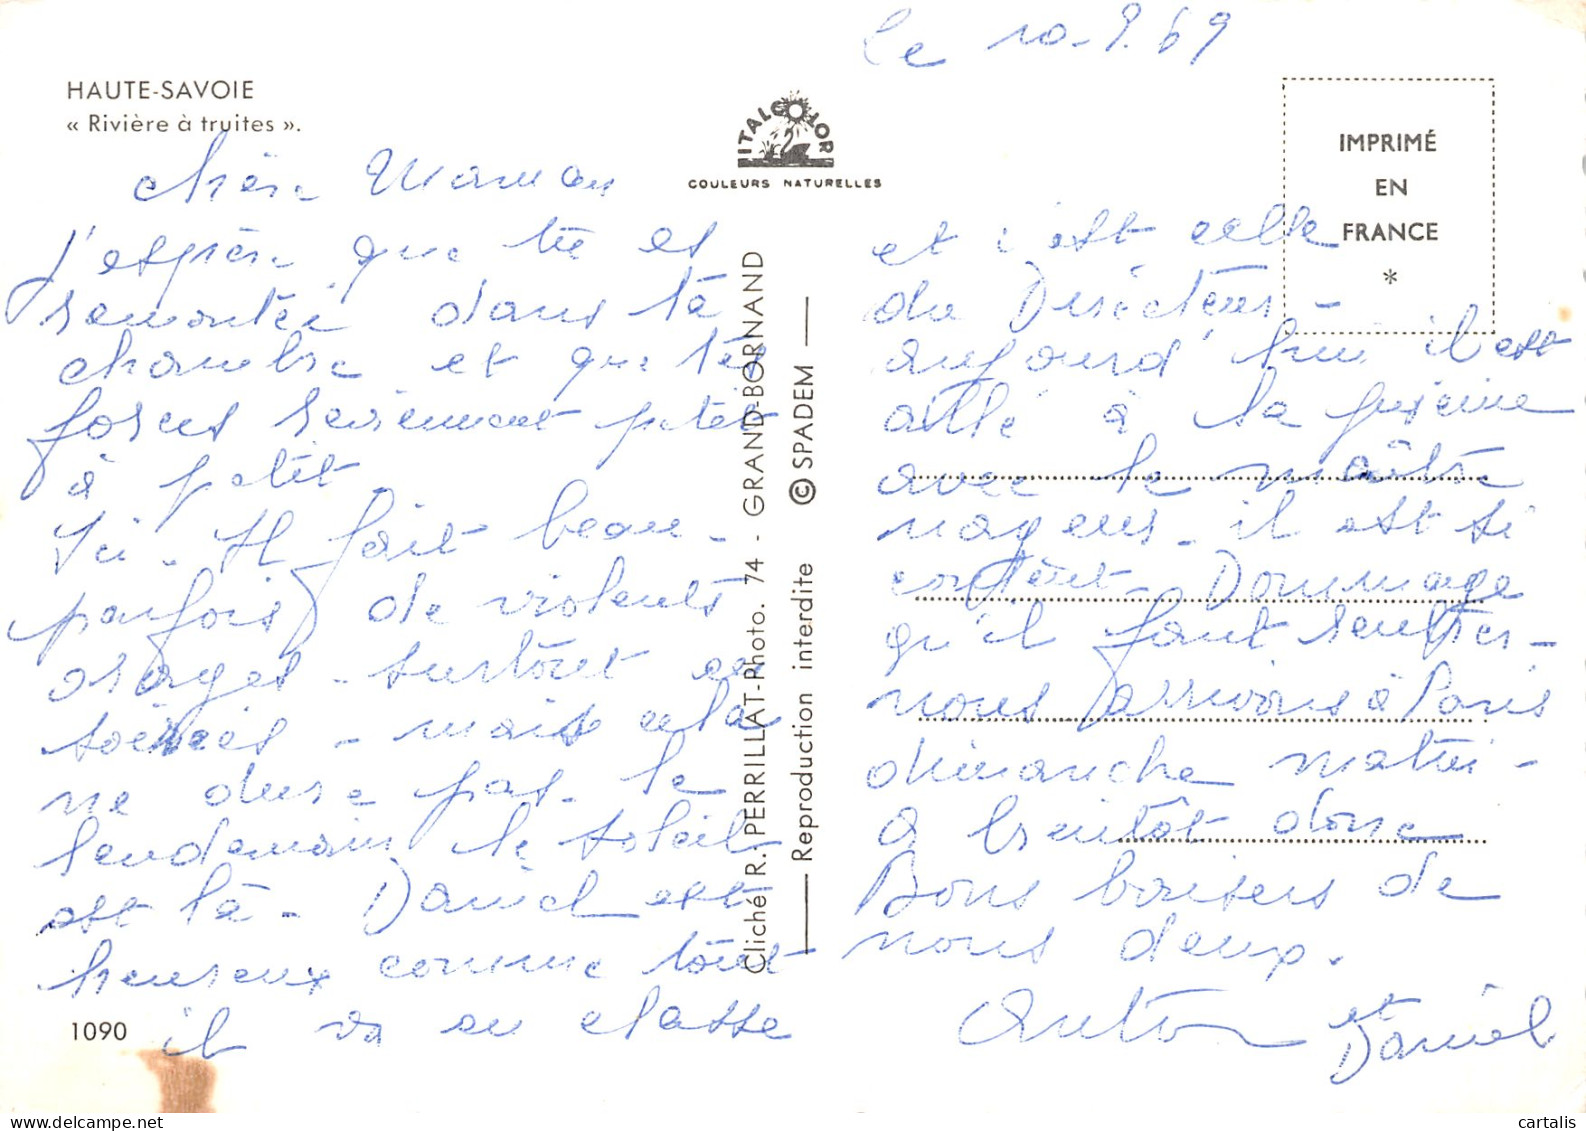 le 10-9.69
HAUTE-SAVOIE
« Rivière à truites ».
ITALCOLOR
COULEURS NATURELLES
IMPRIMÉ
EN
FRANCE
*
chère Maman
J'espère que tu es
remontée dans ta
chambre et que tes
forces reviennent petit
à petit
Ici - Il fait beau -
parfois de violents
orages - surtout en
soirées - mais cela
ne dure pas - le
lendemain le soleil
est là - Daniel est
heureux comme tout
il va en classe
1090
Cliché R. PERRILLAT-Photo. 74 - GRAND-BORNAND
Reproduction interdite © SPADEM
et c'est celle
du Directeur -
aujourd'hui il est
allé à la piscine
avec le maître
nageur - il est si
content - Dommage
qu'il faut rentrer -
nous arrivons à Paris
dimanche matin -
a bientôt donc
Bons baisers de
nous deux.
et
Daniel
cartalis